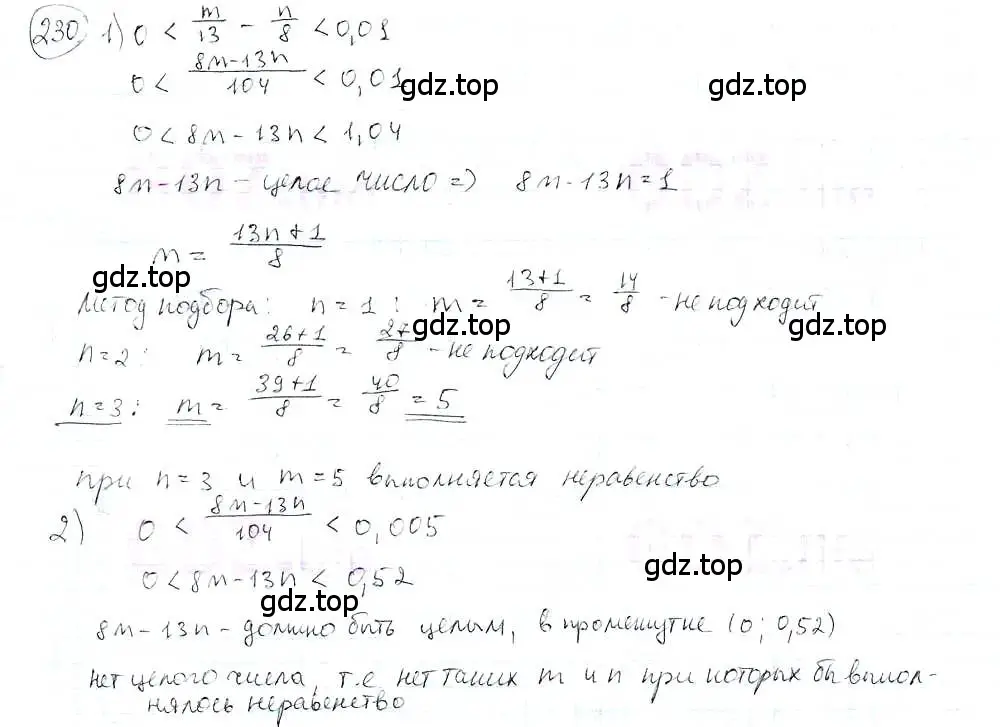 230. 1) 0 < m/13 - n/8 < 0,01
0 < (8m-13n)/104 < 0,01
gdz.top gdz.top
0 < 8m - 13n < 1,04
8m-13n - целое число => 8m-13n=1
m = (13n+1)/8
gdz.top gdz.top
Метод подбора: n=1: m = (13+1)/8 = 14/8 - не подходит
gdz.top gdz.top
n=2: m = (26+1)/8 = 27/8 - не подходит
n=3: m = (39+1)/8 = 40/8 = 5
при n=3 и m=5 выполняется неравенство
2) 0 < (8m-13n)/104 < 0,005
0 < 8m-13n < 0,52
gdz.top gdz.top
8m-13n - должно быть целым, в промежутке (0; 0,52)
нет целого числа, т.е нет таких m и n при которых бы выпол-
нялось неравенство